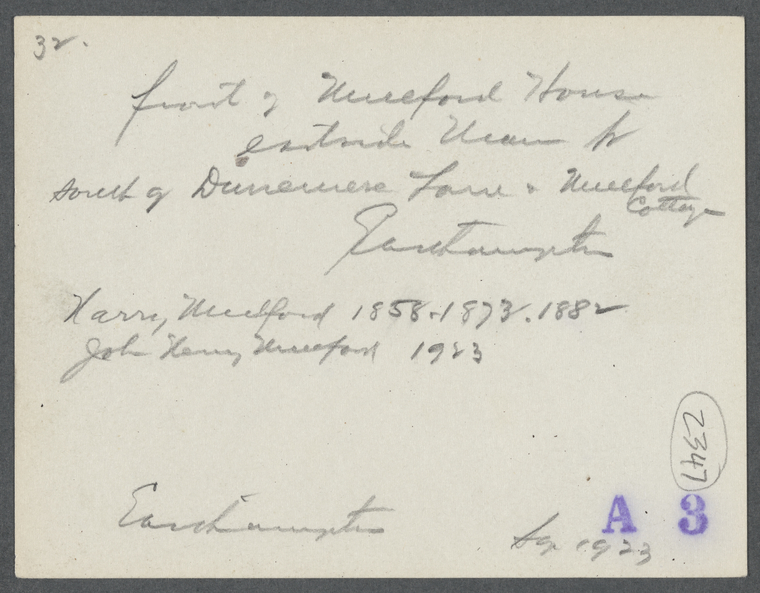 32.
front of Mulford House
eastside Main St
south of Dunemere Lane & Mulford
Cottage
Easthampton
Harry Mulford 1858-1873-1882
John Henry Mulford 1923
2347
Easthampton
A 3
Sep 1923